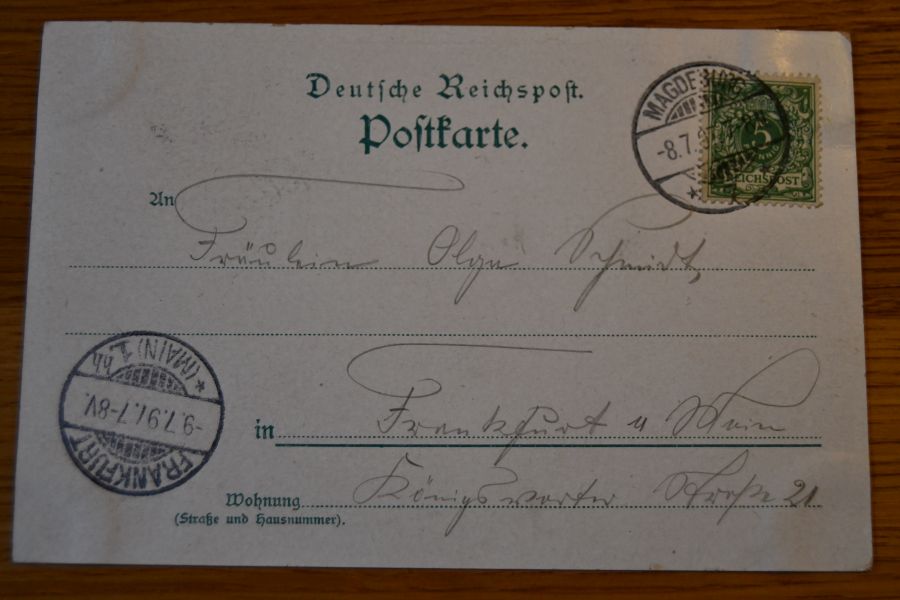 Deutsche Reichspost.
Postkarte.
MAGDEBURG
-8.7.97
5
REICHSPOST
An
Fräulein Olga Schmidt,
in Frankfurt a Main
Wohnung Königswarter Straße 21
(Straße und Hausnummer).
FRANKFURT
-9.7.97.7-8V.
*(MAIN) 1.